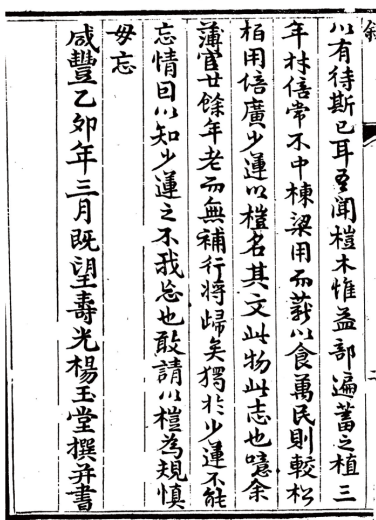 以有待斯已耳吾聞榿木惟益部遍蓄之植三
年材倍常不中棟梁用而薪以食萬民則較松
栢用倍廣少蓮以榿名其文此物此志也噫余
薄官廿餘年老而無補行將歸矣獨於少蓮不能
忘情曰以知少蓮之不我忘也敢請以榿為規慎
毋忘
咸豐乙卯年三月既望壽光楊玉堂撰并書